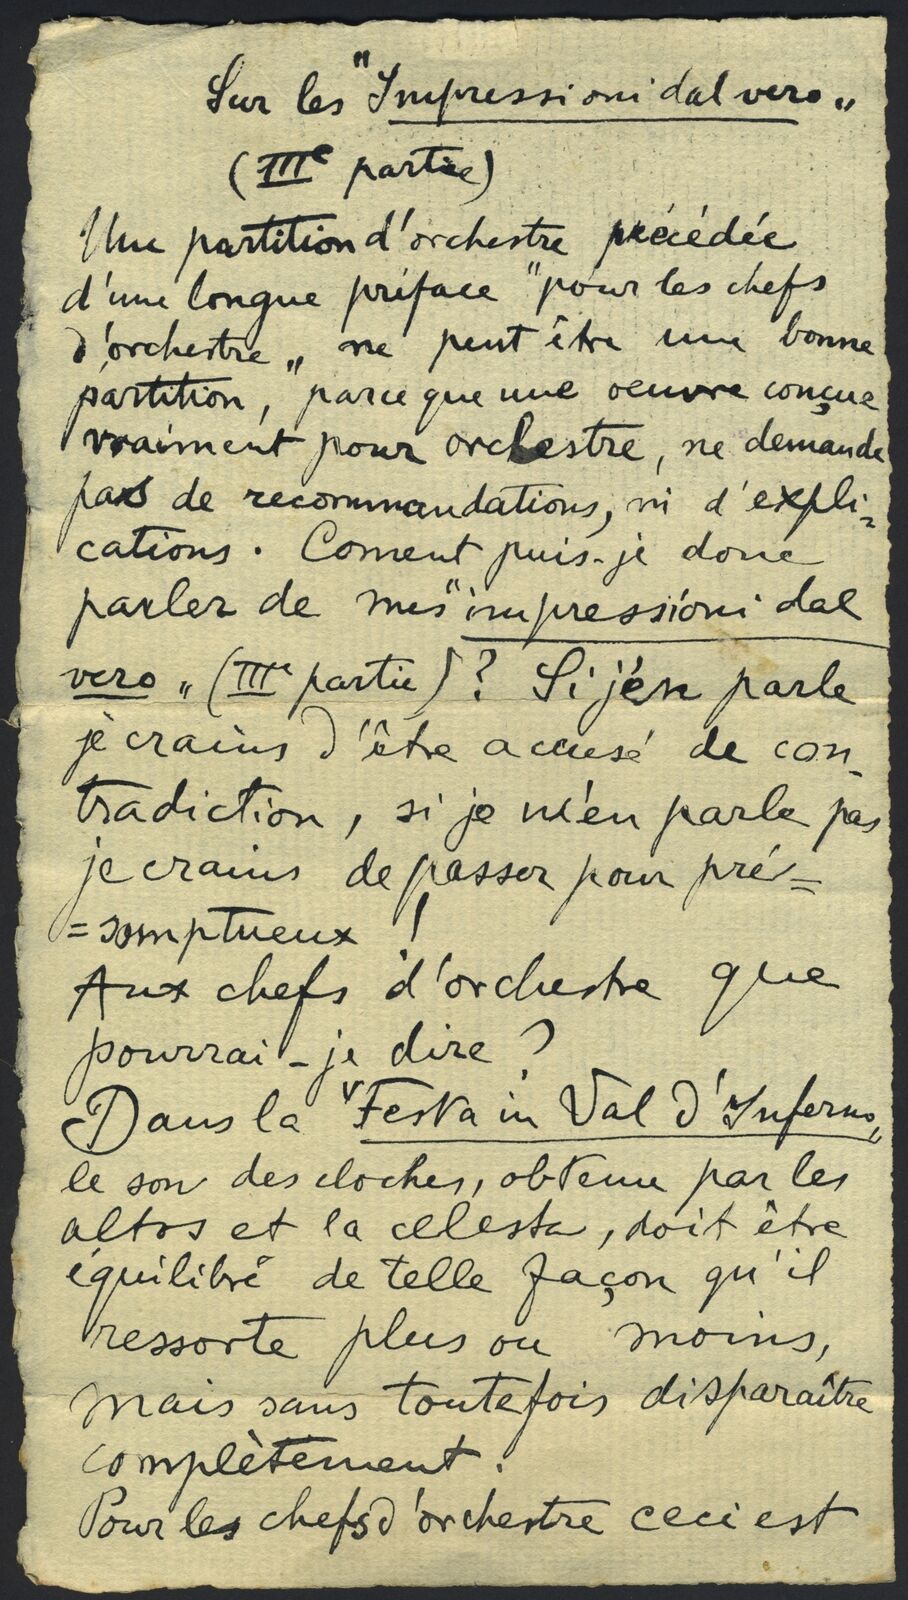 Sur les "Impressioni dal vero„
(IIIe partie)
Une partition d'orchestre précédée
d'une longue préface "pour les chefs
d'orchestre„ ne peut être une bonne
partition, parce que une oeuvre conçue
vraiment pour orchestre, ne demande
pas de recommandations, ni d'expli=
cations. Coment puis-je donc
parler de mes "impressioni dal
vero„ (IIIe partie)? Si j'en parle
je crains d'être accusé de con-
tradiction, si je n'en parle pas
je crains de passer pour pré=
=somptueux!
Aux chefs d'orchestre que
pourrai-je dire?
Dans la "Festa in Val d'Inferno„
le son des cloches, obtenu par les
altos et la celesta, doit être
équilibré de telle façon qu'il
ressorte plus ou moins,
mais sans toutefois disparaître
complètement.
Pour les chefs d'orchestre ceci est